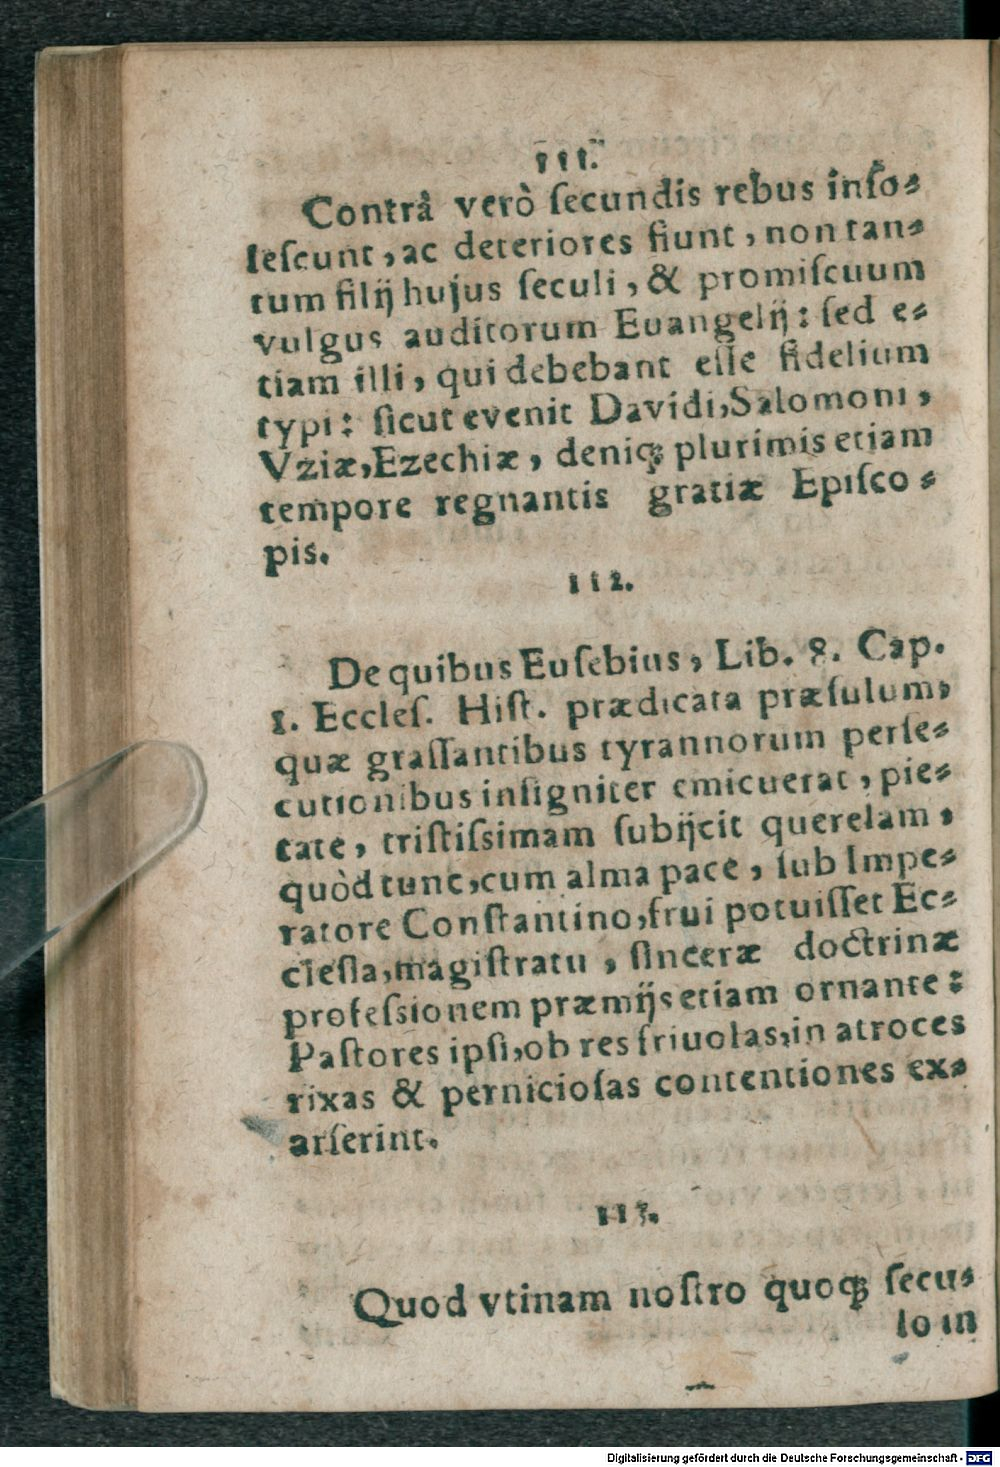 111.
Contrà verò ſecundis rebus inſo⸗
leſcunt, ac deteriores fiunt, non tan⸗
tum filij hujus ſeculi, & promiſcuum
vulgus auditorum Euangelij: ſed e⸗
tiam illi, qui debebant eſſe fidelium
typi: ſicut evenit Davidi, Salomoni,
Vziæ, Ezechiæ, deniqꝫ plurimis etiam
tempore regnantis gratiæ Epiſco⸗
pis.
112.
De quibus Euſebius, Lib. 8. Cap.
1. Eccleſ. Hiſt. prædicata præſulum,
quæ graſſantibus tyrannorum perſe⸗
cutionibus inſigniter emicuerat, pie⸗
tate, triſtiſsimam ſubijcit querelam,
quòd tunc, cum alma pace, ſub Impe⸗
ratore Conſtantino, frui potuiſſet Ec⸗
cleſia, magiſtratu, ſinceræ doctrinæ
profeſsionem præmijs etiam ornante:
Paſtores ipſi, ob res friuolas, in atroces
rixas & pernicioſas contentiones ex⸗
arſerint.
113.
Quod vtinam noſtro quoqꝫ ſecu⸗
lo in
Digitalisierung gefördert durch die Deutsche Forschungsgemeinschaft - DFG